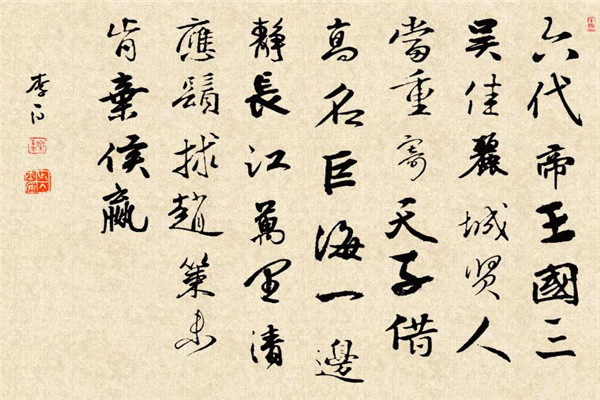 六代帝王國三
吳佳麗城賢人
當重寄天子借
高名巨海一邊
靜長江萬里清
應鬚捄趙策未
肯棄侯嬴
李白